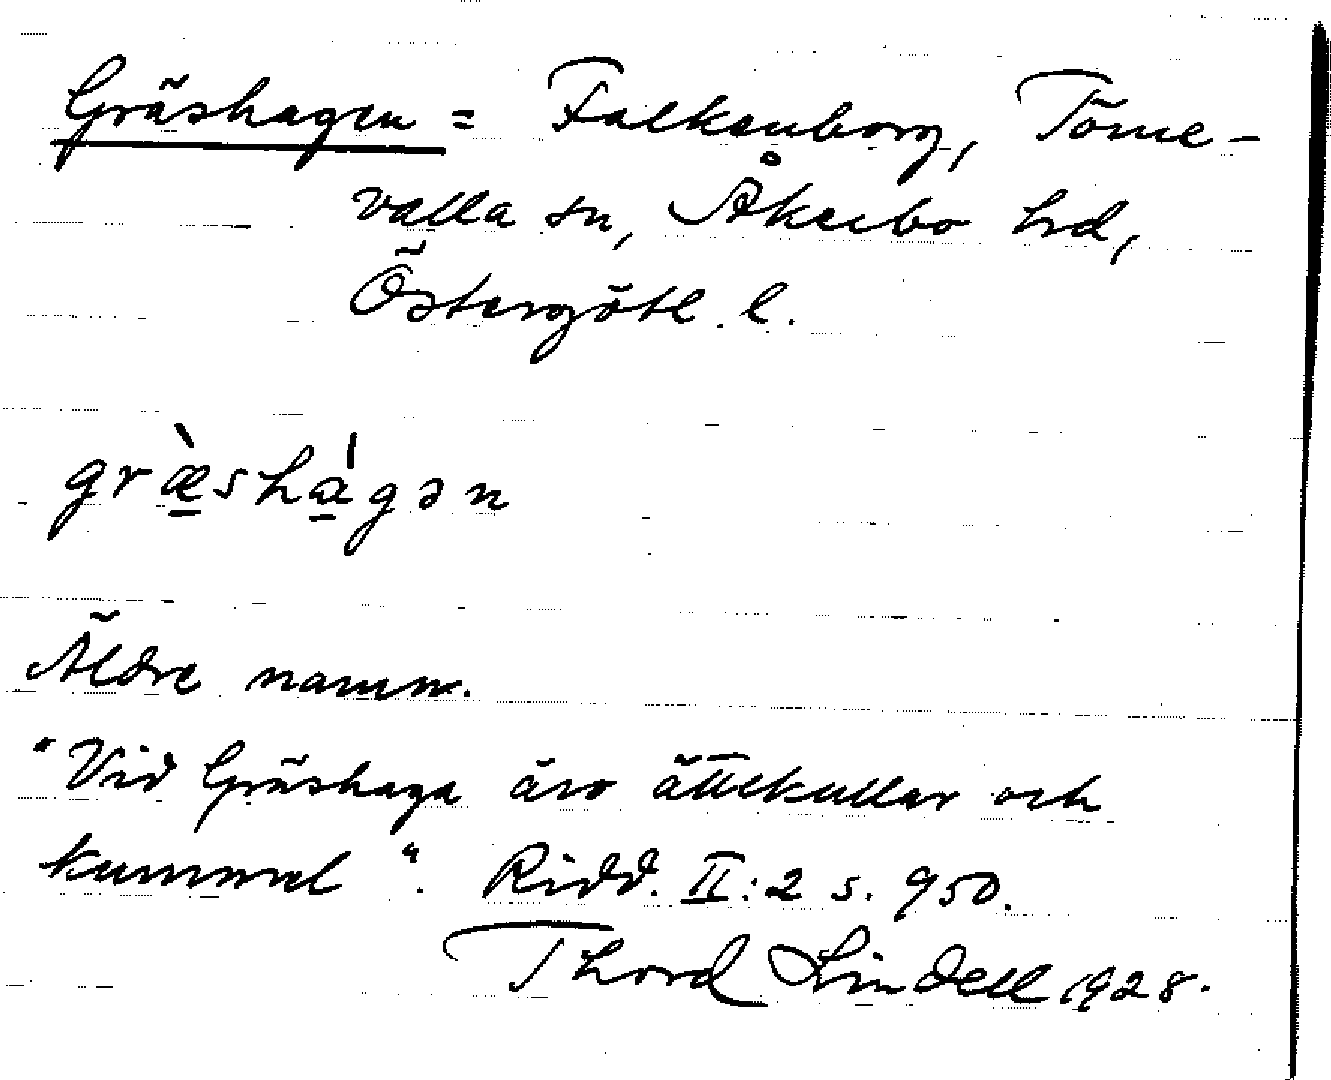 Gräshagen = Falkenborg, Törne-
valla sn, Åkerbo hd,
Östergötl. l.
græ̀shágən
Äldre namn.
"Vid Gräshaga äro ättekullar och
kummel". Ridd. II:2 s. 950.
Thord Lindell 1928.